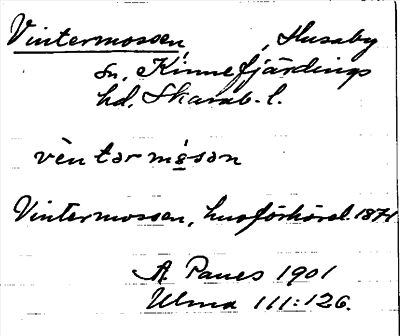 Vintermossen, , Husaby
sn, Kinnefjärdings
hd, Skarab. l.
vèn tər mɷ́sən
Vintermossen, husförhörsl. 1874
A. Palnes 1901
Ulma 111:126.